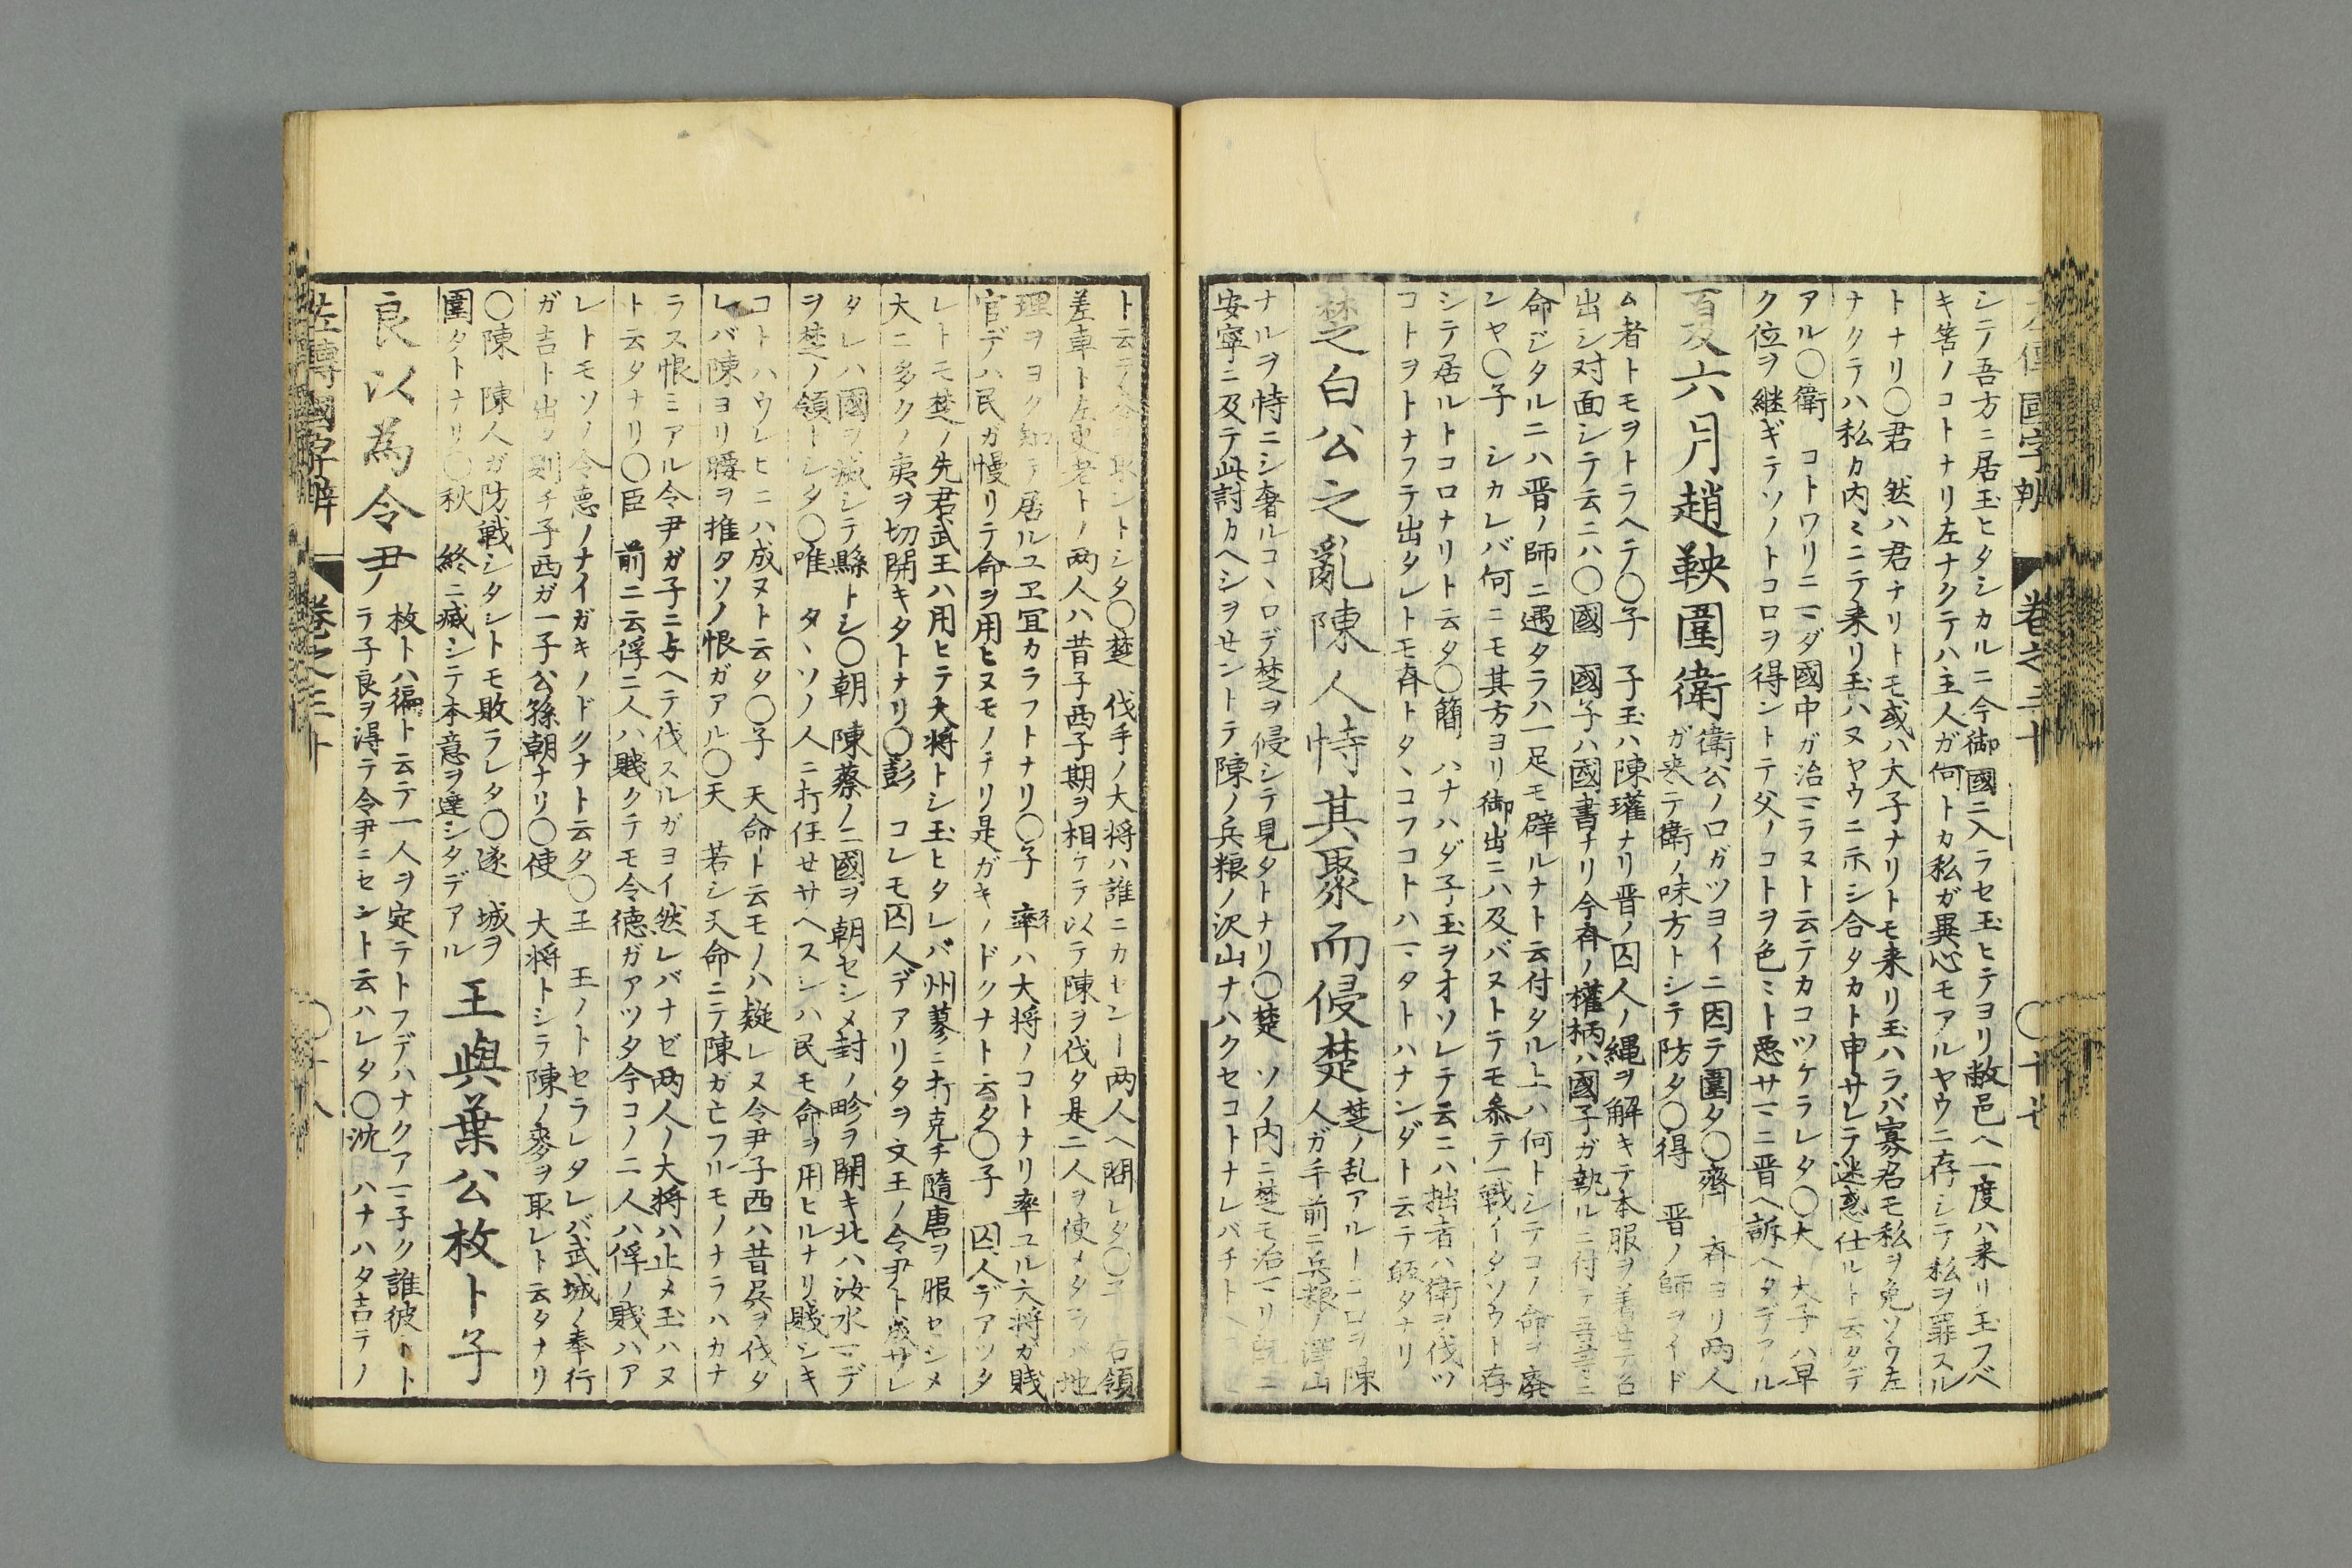 シテ吾方ニ居玉ヒタシカルニ今御國ニ入ラセ玉ヒテヨリ敝邑ヘ一度ハ来リ玉フベ
キ筈ノコトナリ左ナクテハ主人ガ何トカ私ガ異心モアルヤウニ存シテ私ヲ罪スル
トナリ〇君 然ハ君ナリトモ或ハ大子ナリトモ来リ玉ハラバ寡君モ私ヲ免ソウ左
ナクテハ私カ内ミニテ来リ玉ハヌヤウニ示シ合タカト申サレテ迷惑仕ルト云タデ
アル〇衛 コトワリニマダ國中ガ治マラヌト云テカコツケラレタ〇大 大子ハ早
ク位ヲ継ギテソノトコロヲ得ントテ父ノコトヲ色ミト悪サマニ晋ヘ訴ヘタデアル
夏六月趙鞅圍衛
衛公ノロガツヨイニ因テ圍タ〇齊 斉ヨリ両人
ガ来テ衛ノ味方トシテ防タ〇得 晋ノ師ヲイド
ム者トモヲトラヘテ〇子 子玉ハ陳瓘ナリ晋ノ囚人ノ縄ヲ解キテ本服ヲ着セテ召
出シ対面シテ云ニハ〇國 國子ハ國書ナリ今斉ノ權柄ハ國子ガ執ルニ付テ吾等ニ
命ジタルニハ晋ノ師ニ遇タラハ一足モ辟ルナト云付タル上ハ何トシテコノ命ヲ廃
ンヤ〇子 シカレバ何ニモ其方ヨリ御出ニハ及バヌトテモ参テ一戦イタソウト存
シテ居ルトコロナリト云タ〇簡 ハナハダ子玉ヲオソレテ云ニハ拙者ハ衛ヲ伐ツ
コトヲトナフテ出タレトモ斉トタヽコフコトハマタトハナンダト云テ帰タナリ
楚之白公之亂陳人恃其聚而侵楚
楚ノ乱アルトコロヲ陳
人ガ手前ニ兵粮ノ澤山
ナルヲ恃ニシ奢ルコヽロデ楚ヲ侵シテ見タトナリ〇楚 ソノ内ニ楚モ治マリ既ニ
安寧ニ及テ此討カヘシヲセントテ陳ノ兵粮ノ沢山ナハクセコトナレバチト
卷之三十
ト云テ今取ントシタ〇楚 伐手ノ大将ハ誰ニカセント両人ヘ問レタ〇子 右領
差車ト左史老トノ両人ハ昔子西子期ヲ相ケテ以テ陳ヲ伐タ是二人ヲ使メタラバ地
理ヲヨク知テ居ルユヱ宜カラフトナリ〇子 率ハ大将ノコトナリ率ユル大将ガ賎
官デハ民ガ慢リテ命ヲ用ヒヌモノナリ是ガキノドクナト云タ〇子 囚人デアツタ
レトモ楚ノ先君武王ハ用ヒテ大将トシ玉ヒタレバ州蓼ニ打克チ隨唐ヲ服セシメ
大ニ多クノ夷ヲ切開キタトナリ〇彭 コレモ囚人デアリタヲ文王ノ令尹ト成サレ
タレハ國ヲ滅シテ縣トシ〇朝 陳蔡ノ二國ヲ朝セシメ封ノ畛ヲ開キ北ハ汝水マデ
ヲ楚ノ領トシタ〇唯 タヽソノ人ニ打任せサヘスシハ民モ命ヲ用ヒルナリ賎シキ
コトハウレヒニハ成ヌト云タ〇子 天命ト云モノハ疑レヌ令尹子西ハ昔呉ヲ伐タ
レバ陳ヨリ腰ヲ推タソノ恨ガアル〇天 若シ天命ニテ陳ガ亡フルモノナラハカナ
ラス恨ミアル令尹ガ子ニ与ヘテ伐スルガヨイ然レバナゼ両人ノ大将ハ止メ玉ハヌ
ト云タナリ〇臣 前ニ云俘二人ハ賎クテモ令徳ガアツタ今コノ二人ハ俘ノ賎ハア
レトモソノ令悳ノナイガキノドクナト云タ〇王 王ノトセラレタレバ武城ノ奉行
ガ吉ト出タ則チ子西ガ一子公孫朝ナリ〇使 大将トシテ陳ノ麥ヲ取レト云タナリ
〇陳 陳人ガ防戦シタシトモ敗ラレタ〇遂 城ヲ
圍タトナリ〇秋 終ニ滅シテ本意ヲ達シタデアル
王與葉公枚ト子
良以為令尹
枚トハ徧ト云テ一人ヲ定テトフデハナクアマ子ク誰彼ヽト
ノラ子良ヲ得テ令尹ニセシト云ハレタ〇沈 ハナハタ吉テノ
左傳國字解 卷之三十 〇十八